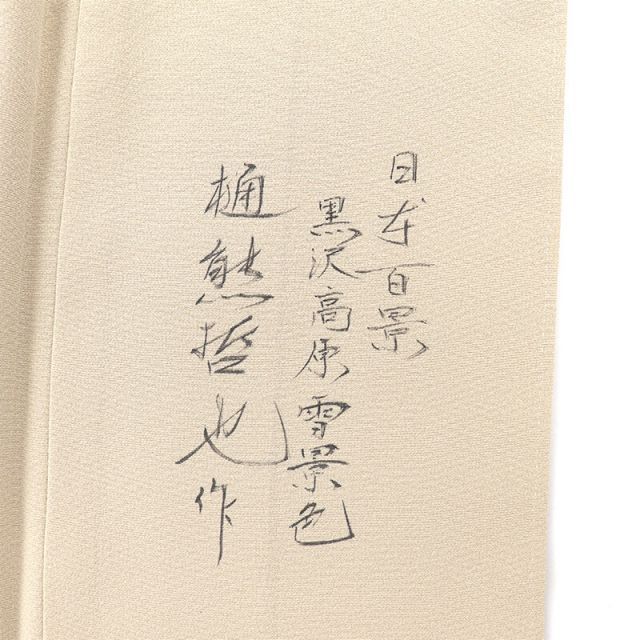 日本百景
黒沢高原雪景色
樋熊哲也作